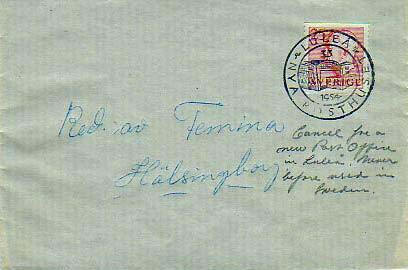 LULEÅ
1954
POSTHUS
SVERIGE
Red. av Femina
Hälsingborg
Cancel for a
new Post Office
in Luleå. Never
before used in
Sweden.